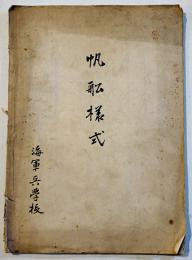 帆船様式
海軍兵學校